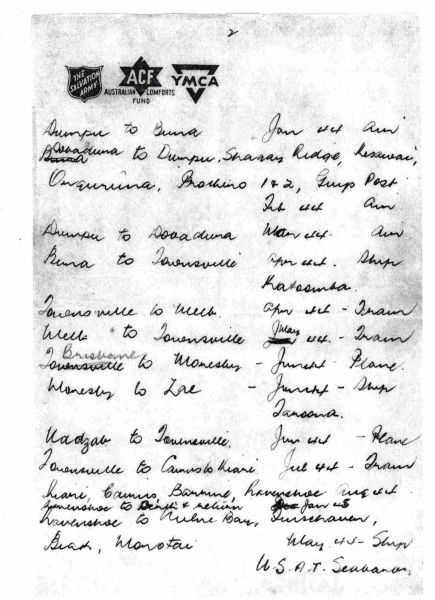 2
THE SALVATION ARMY
ACF
AUSTRALIAN COMFORTS FUND
YMCA
Dumpu to Buna Jan 44 Air
Dobaduna to Dumpu, Shaggy Ridge, Kesawai,
Orgoruna, Prothero 1 & 2, Guys Post.
Feb 44 Air
Dumpu to Dobaduna Mar 44. Air
Buna to Townsville Apr 44. Ship
Katoomba.
Townsville to Melb. Apr 44 - Train
Melb to Townsville May 44. - Train
Brisbane to Moresby - June 44 - Plane.
Moresby to Lae - June 44 - Ship
Taroona.
Nadzab to Townsville. Jun 44 - Plane
Townsville to Cairns to Miari. Jul 44 - Train
Miari, Cairns, Barrine, Ravenshoe Aug 44
Ravenshoe to & return Jan 45
Ravenshoe to Milne Bay, Finschaven,
Biak, Morotai May 44 - Ship
U.S.A.T.